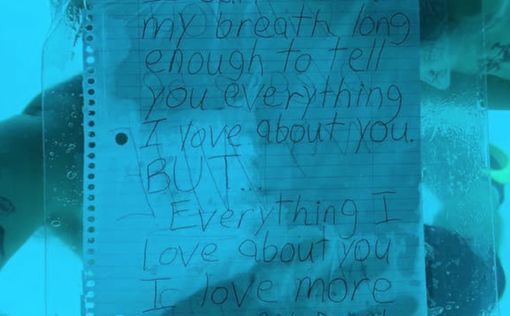 my breath long
enough to tell
you everything
I love about you.
BUT...
Everything I
Love about you
I love more